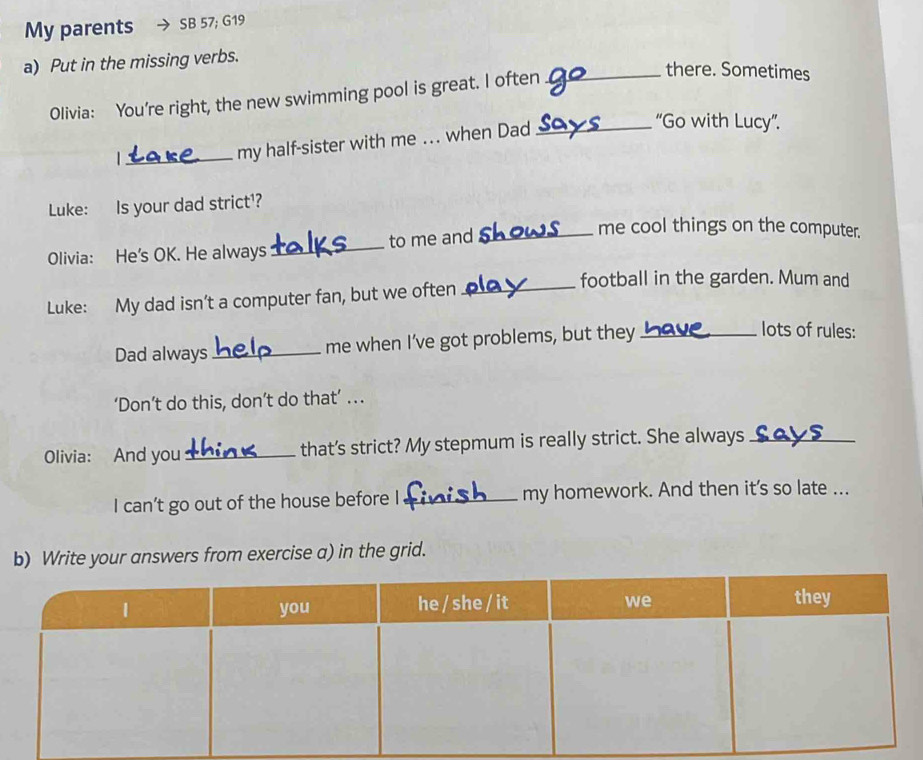 My parents → SB 57; G19
a) Put in the missing verbs.
Olivia: You’re right, the new swimming pool is great. I often go there. Sometimes
I take my half-sister with me … when Dad says “Go with Lucy”.
Luke: Is your dad strict¹?
Olivia: He’s OK. He always talks to me and shows me cool things on the computer.
Luke: My dad isn’t a computer fan, but we often play football in the garden. Mum and
Dad always help me when I’ve got problems, but they have lots of rules:
‘Don’t do this, don’t do that’ …
Olivia: And you think that’s strict? My stepmum is really strict. She always says
I can’t go out of the house before I finish my homework. And then it’s so late …
b) Write your answers from exercise a) in the grid.
I you he / she / it we they